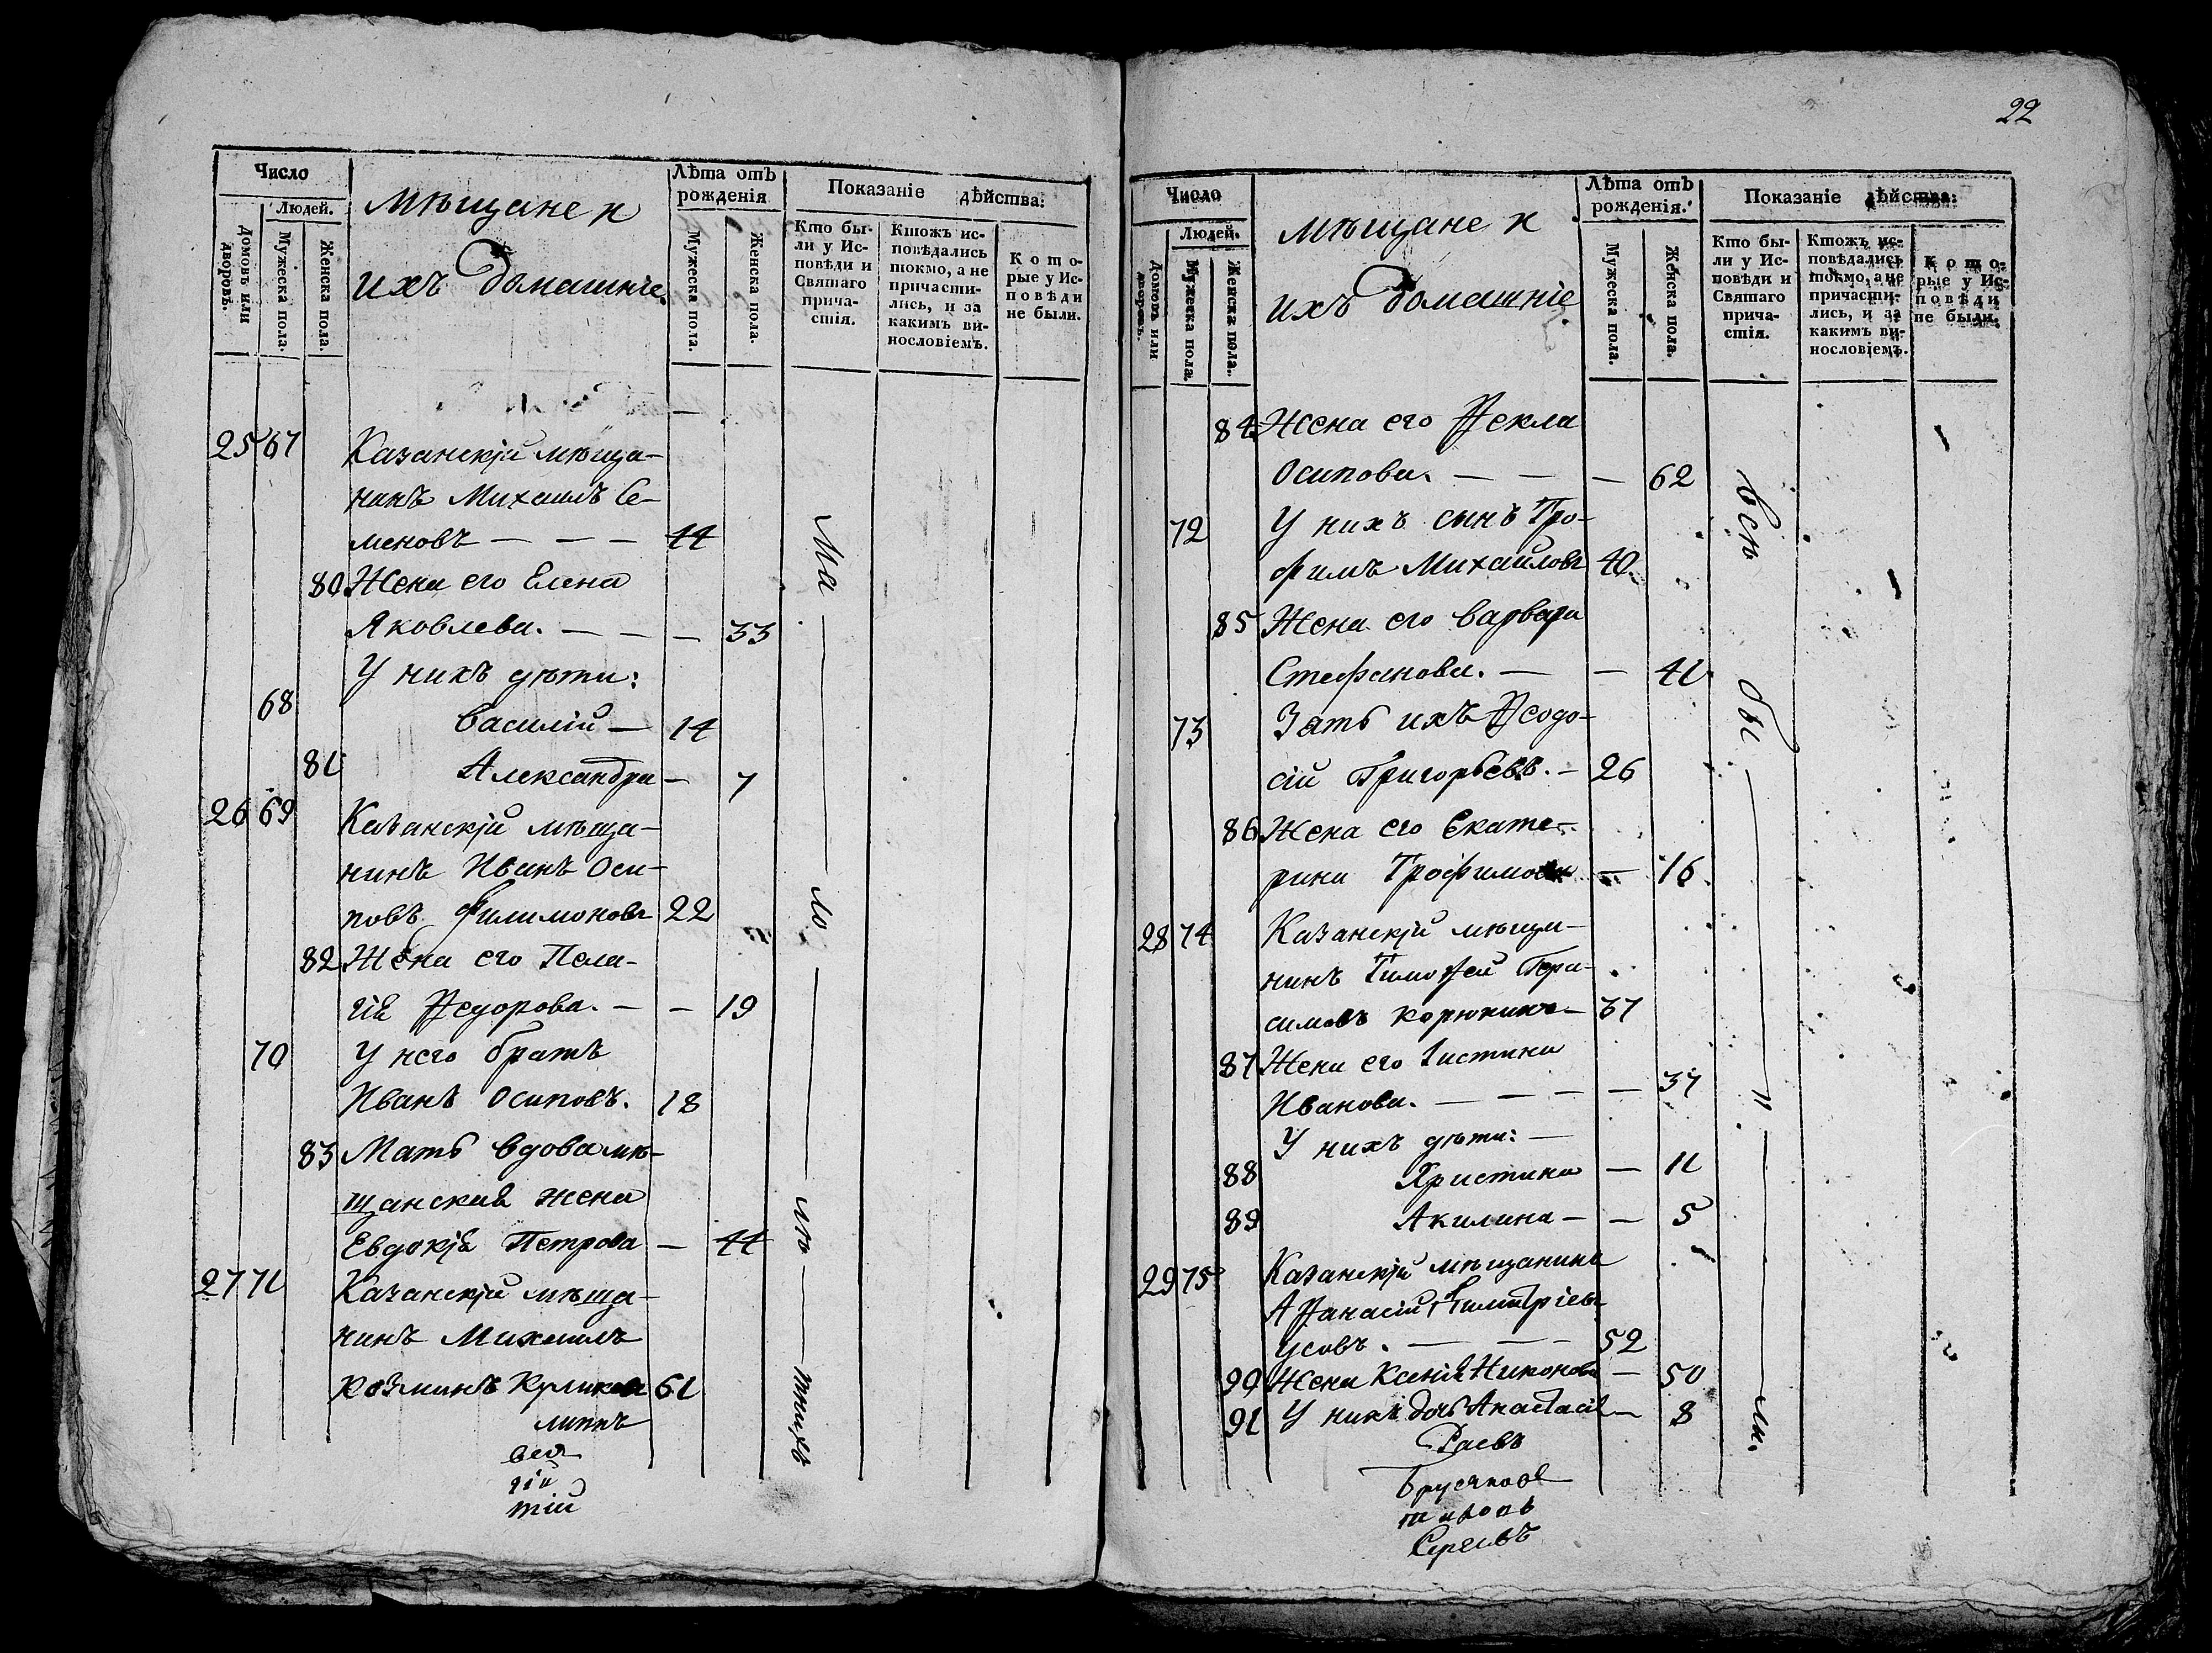 Число
Людей.
Домовъ или дворовъ.
Мужеска пола.
Женска пола.
мѣщане и
ихъ домашніе.
Лѣта отъ
рожденія
Мужеска пола.
Женска пола.
Показаніе дѣйства:
Кто бы-
ли у Ис-
повѣди и
Святаго
прича-
стія.
Ктожъ ис-
повѣдались
токмо, а не
причасти-
лись, и за
какимъ ви-
нословіемъ.
Кото-
рые у Ис-
повѣди
не были.
25 67 Казанскій мѣща-
нинъ Михаилъ Се-
меновъ — — — 44
80 Жена его Елена
Яковлева. — — — 33
У нихъ дѣти:
68 Василій — 14
81 Александра — 7
26 69 Казанскій мѣща-
нинъ Иванъ Оси-
повъ Филимоновъ 22
82 Жена его Пела-
гія Ѳедорова. — — 19
70 У него братъ
Иванъ Осиповъ. 18
83 Мать вдова мѣ-
щанская жена
Евдокія Петрова — 44
27 71 Казанскій мѣща-
нинъ Михаилъ
Козминъ Куликов 61
липпъ
гій
тій
22
Число
Людей.
Домовъ или дворовъ.
Мужеска пола
Женска пола.
мѣщане и
ихъ домашніе.
Лѣта отъ
рожденія.
Мужеска пола.
Женска пола.
Показаніе дѣйства:
Кто бы-
ли у Ис-
повѣди и
Святаго
прича-
стія.
Ктожъ ис-
повѣдались
токмо, а не
причасти-
лись, и за
какимъ ви-
нословіемъ.
Кото-
рые у Ис-
повѣди
не были.
84 Жена его Ѳекла
Осипова. — — — 62
72 У нихъ сынъ Тро-
фимъ Михайловъ 40
85 Жена его Варвара
Стефанова. — — 41
73 Зять ихъ Ѳеодо-
сій Григорьевъ. — 26
86 Жена его Екате-
рина Трофимова — 16
28 74 Казанскій мѣща-
нинъ Тимоѳей Гера-
симовъ Корюкинъ — 37
87 Жена его Іустина
Иванова. — — — — 37
У нихъ дѣти: —
88 Христина — 11
89 Акилина — — 5
29 75 Казанскій мѣщанинъ
Аѳанасій Димитріевъ
Усовъ. — — — 52
90 Жена Ксенія Никонова — 50
91 У нихъ дочь Анастасія — 8
всѣ
бы
ли.
Сергевъ